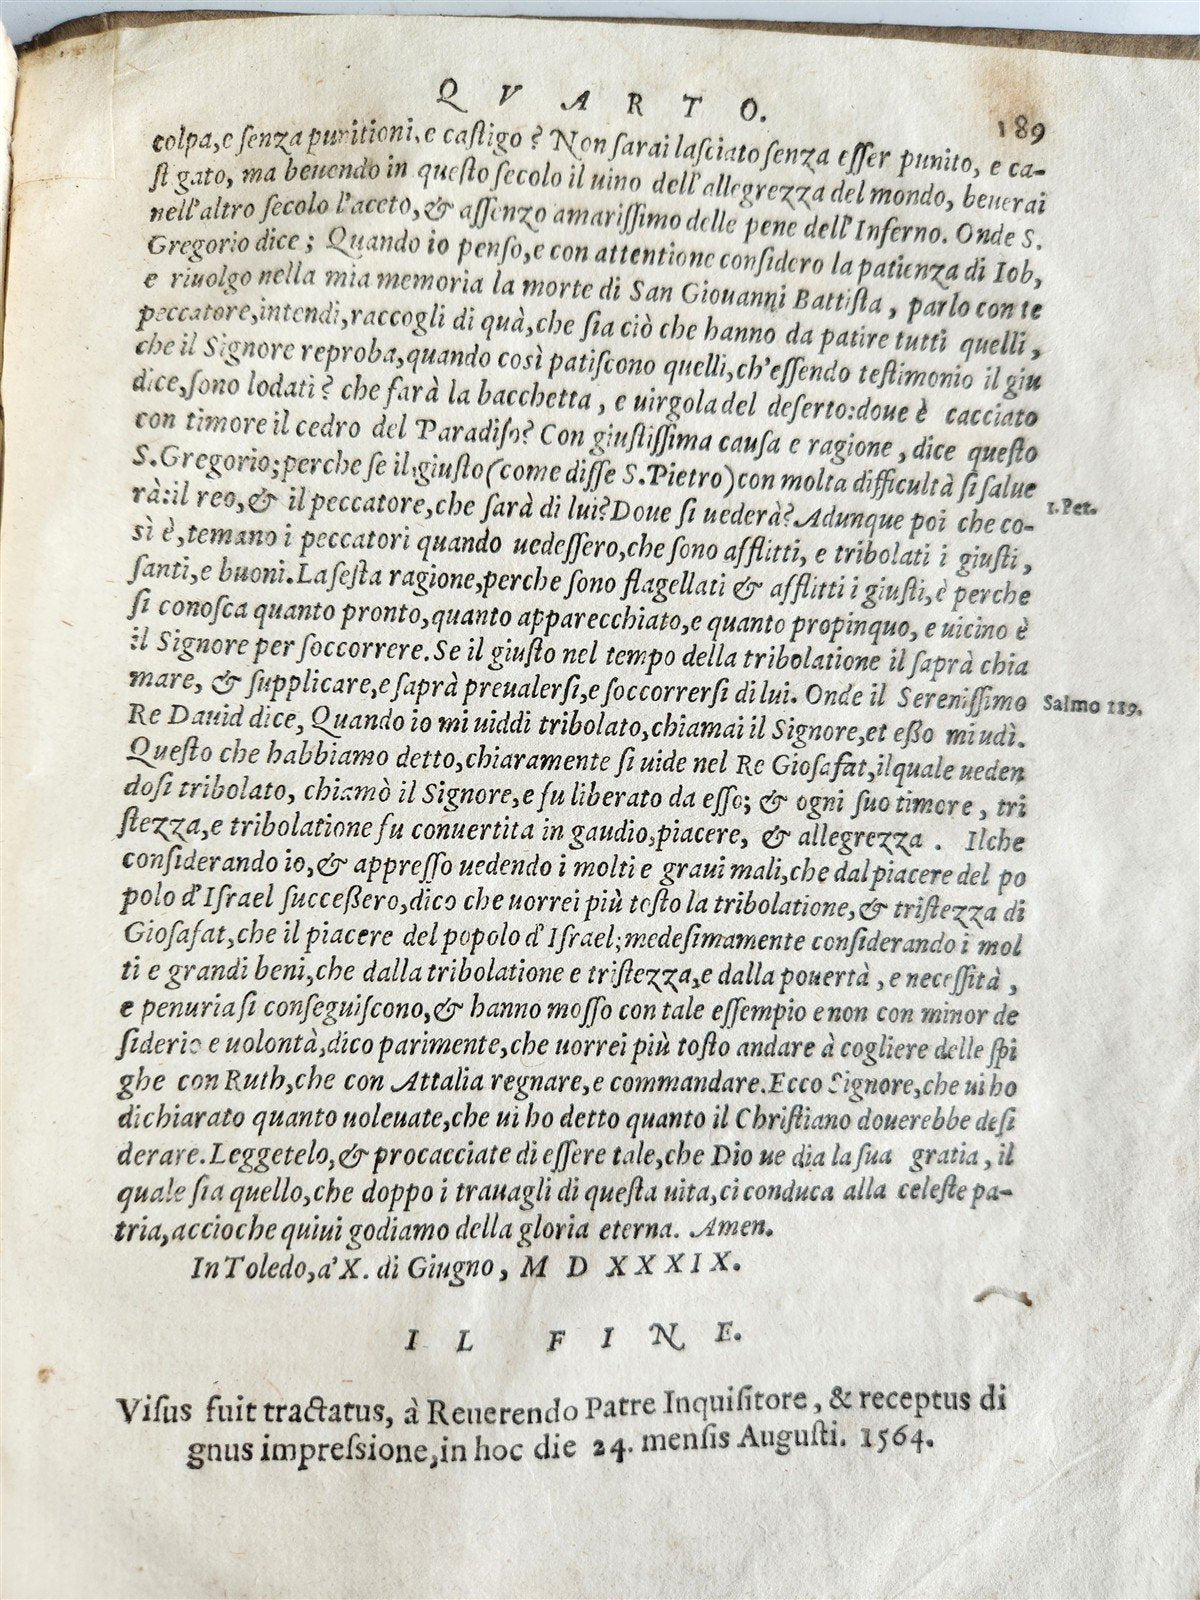 QVARTO.
189
colpa, e senza punitioni, e castigo? Non sarai lasciato senza esser punito, e ca-
st gato, ma beuendo in questo secolo il uino dell'allegrezza del mondo, beuerai
nell'altro secolo l'aceto, & assenzo amarissimo delle pene dell'Inferno. Onde S.
Gregorio dice; Quando io penso, e con attentione considero la patienza di Iob,
e riuolgo nella mia memoria la morte di San Giouanni Battista, parlo con te
peccatore, intendi, raccogli di quà, che sia ciò che hanno da patire tutti quelli,
che il Signore reproba, quando così patiscono quelli, ch'essendo testimonio il giu
dice, sono lodati? che farà la bacchetta, e uirgola del deserto: doue è cacciato
con timore il cedro del Paradiso? Con giustissima causa e ragione, dice questo
S. Gregorio; perche se il giusto (come disse S. Pietro) con molta difficultà si salue
rà: il reo, & il peccatore, che sarà di lui? Doue si uederà? Adunque poi che co-
1. Pet.
sì è, temano i peccatori quando uedessero, che sono afflitti, e tribolati i giusti,
santi, e buoni. La sesta ragione, perche sono flagellati & afflitti i giusti, è perche
si conosca quanto pronto, quanto apparecchiato, e quanto propinquo, e uicino è
il Signore per soccorrere. Se il giusto nel tempo della tribolatione il saprà chia
mare, & supplicare, e saprà preualersi, e soccorrersi di lui. Onde il Serenissimo
Salmo 119.
Re Dauid dice, Quando io mi uiddi tribolato, chiamai il Signore, et eßo mi udì.
Questo che habbiamo detto, chiaramente si uide nel Re Giosafat, il quale ueden
dosi tribolato, chiamò il Signore, e fu liberato da esso; & ogni suo timore, tri
stezza, e tribolatione fu conuertita in gaudio, piacere, & allegrezza. Ilche
considerando io, & appresso uedendo i molti e graui mali, che dal piacere del po
polo d'Israel succeßero, dico che uorrei più tosto la tribolatione, & tristezza di
Giosafat, che il piacere del popolo d'Israel; medesimamente considerando i mol
ti e grandi beni, che dalla tribolatione e tristezza, e dalla pouertà, e necessità,
e penuria si conseguiscono, & hanno mosso con tale essempio e non con minor de
siderio e uolontà, dico parimente, che uorrei più tosto andare à cogliere delle spi
ghe con Ruth, che con Attalia regnare, e commandare. Ecco Signore, che ui ho
dichiarato quanto uoleuate, che ui ho detto quanto il Christiano douerebbe desi
derare. Leggetelo, & procacciate di essere tale, che Dio ue dia la sua gratia, il
quale sia quello, che doppo i trauagli di questa uita, ci conduca alla celeste pa-
tria, accioche quiui godiamo della gloria eterna. Amen.
In Toledo, a' X. di Giugno, M D XXXIX.
IL FINE.
Visus fuit tractatus, à Reuerendo Patre Inquisitore, & receptus di
gnus impressione, in hoc die 24. mensis Augusti. 1564.